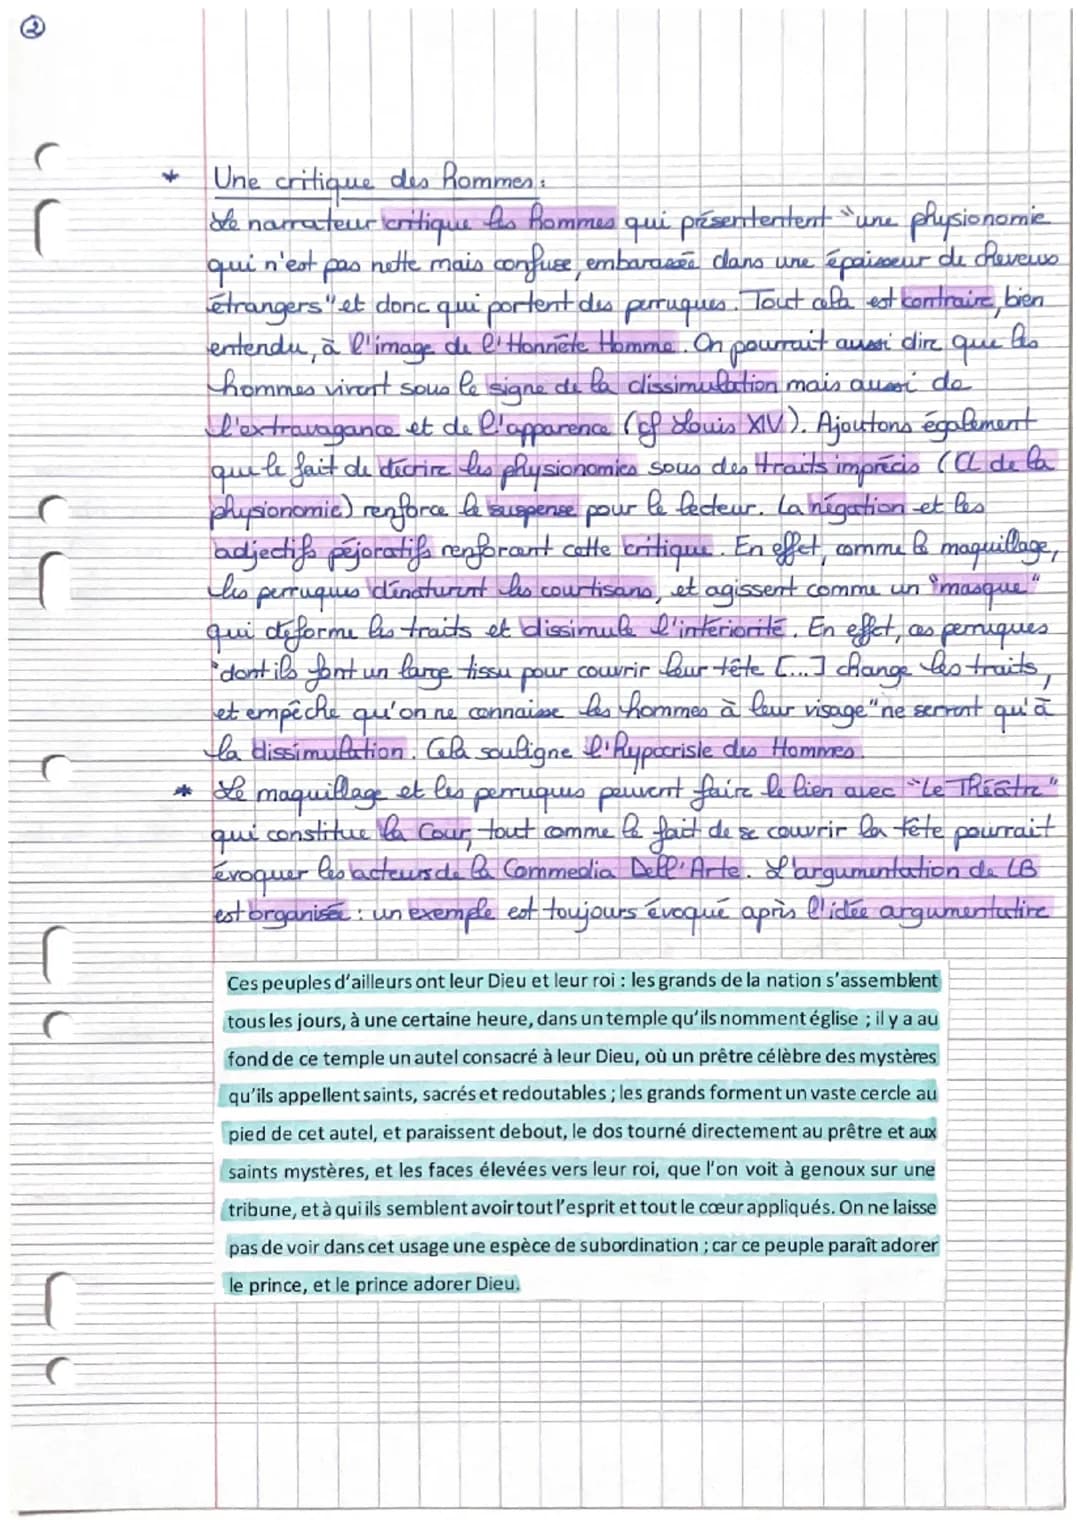 2
* Une critique des Hommes :
Le narrateur critique les hommes qui présententent "une physionomie
qui n'est pas nette mais confuse, embarassée dans une épaisseur de cheveux
étrangers" et donc qui portent des perruques. Tout cela est contraire, bien
entendu, à l'image de l'Honnête Homme. On pourrait aussi dire que les
hommes vivent sous le signe de la dissimulation mais aussi de
l'extravagance et de l'apparence (cf Louis XIV). Ajoutons également
que le fait de décrire les physionomies sous des traits imprécis (CL de la
physionomie) renforce le suspense pour le lecteur. La négation et les
adjectifs péjoratifs renforcent cette critique. En effet, comme le maquillage,
les perruques dénaturent les courtisans, et agissent comme un "masque"
qui déforme les traits et dissimule l'intériorité. En effet, ces perruques
"dont ils font un large tissu pour couvrir leur tête [...] change les traits,
et empêche qu'on ne connaisse les hommes à leur visage" ne servent qu'à
la dissimulation. Cela souligne l'hypocrisie des Hommes.
* Le maquillage et les perruques peuvent faire le lien avec "Le Théâtre"
qui constitue la Cour, tout comme le fait de se couvrir la tête pourrait
évoquer les acteurs de la Commedia Dell'Arte. L'argumentation de LB
est organisée : un exemple est toujours évoqué après l'idée argumentative
Ces peuples d'ailleurs ont leur Dieu et leur roi : les grands de la nation s'assemblent
tous les jours, à une certaine heure, dans un temple qu'ils nomment église ; il y a au
fond de ce temple un autel consacré à leur Dieu, où un prêtre célèbre des mystères
qu'ils appellent saints, sacrés et redoutables ; les grands forment un vaste cercle au
pied de cet autel, et paraissent debout, le dos tourné directement au prêtre et aux
saints mystères, et les faces élevées vers leur roi, que l'on voit à genoux sur une
tribune, et à qui ils semblent avoir tout l'esprit et tout le cœur appliqués. On ne laisse
pas de voir dans cet usage une espèce de subordination ; car ce peuple paraît adorer
le prince, et le prince adorer Dieu.